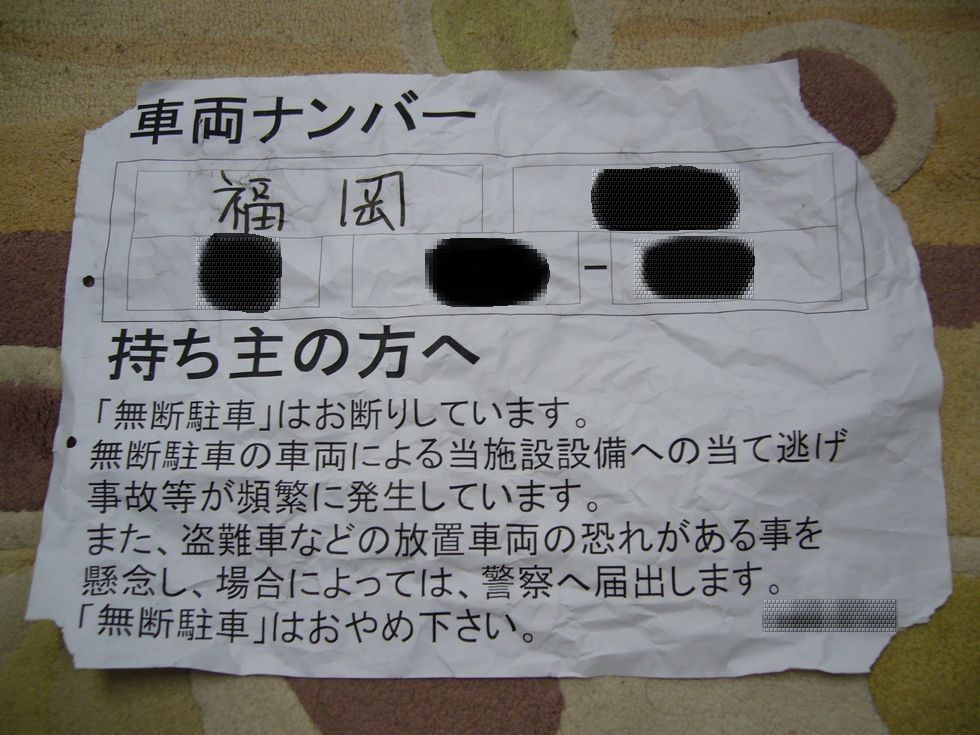 車両ナンバー
福岡
-
持ち主の方へ
「無断駐車」はお断りしています。
無断駐車の車両による当施設設備への当て逃げ
事故等が頻繁に発生しています。
また、盗難車などの放置車両の恐れがある事を
懸念し、場合によっては、警察へ届出します。
「無断駐車」はおやめ下さい。